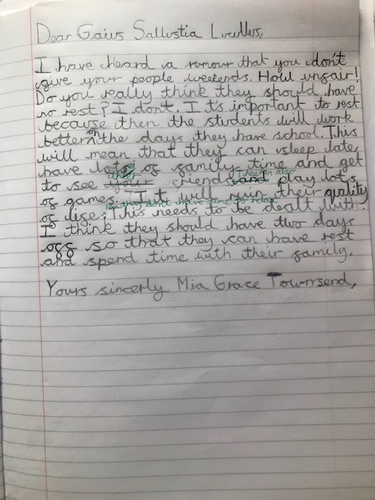 Dear Gaius Sallustia Lucullus,
I have heard a rumour that you don't
give your people weekends. How unfair!
Do you really think they should have
no rest? I don't. It's important to rest
because then the students will work
better on the days they have school. This
will mean that they can sleep late,
have lots of family time and get
to see friends and play lots
of games. It will ruin their quality
of life if they don't have time to relax.
This needs to be dealt with.
I think they should have two days
off so that they can have rest
and spend time with their family.
Yours sincerly Mia Grace Townsend,